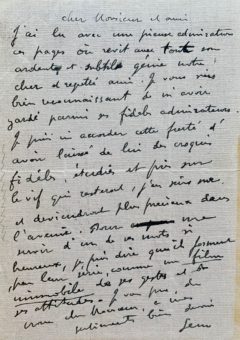 cher Monsieur et ami
J'ai lu avec une pieuse admiration
ces pages où revit avec tout son
ardent et subtil génie notre
cher et regretté ami. Je vous suis
bien reconnaissant de m'avoir
gardé parmi ses fidèles admirateurs.
Je puis m'accorder cette fierté d'
avoir laissé de lui des croquis
fidèles, étudiés et pris sur
le vif qui resteront, j'en suis sûr
et deviendront plus précieux dans
l'avenir. Pour me
servir d'un de ces mots si
heureux, je puis dire qu'ils forment
par leur série, comme un film
immobile des ses gestes et de
ses attitudes. Je vous prie de
croire cher Monsieur, à mes
sentiments bien
Sem